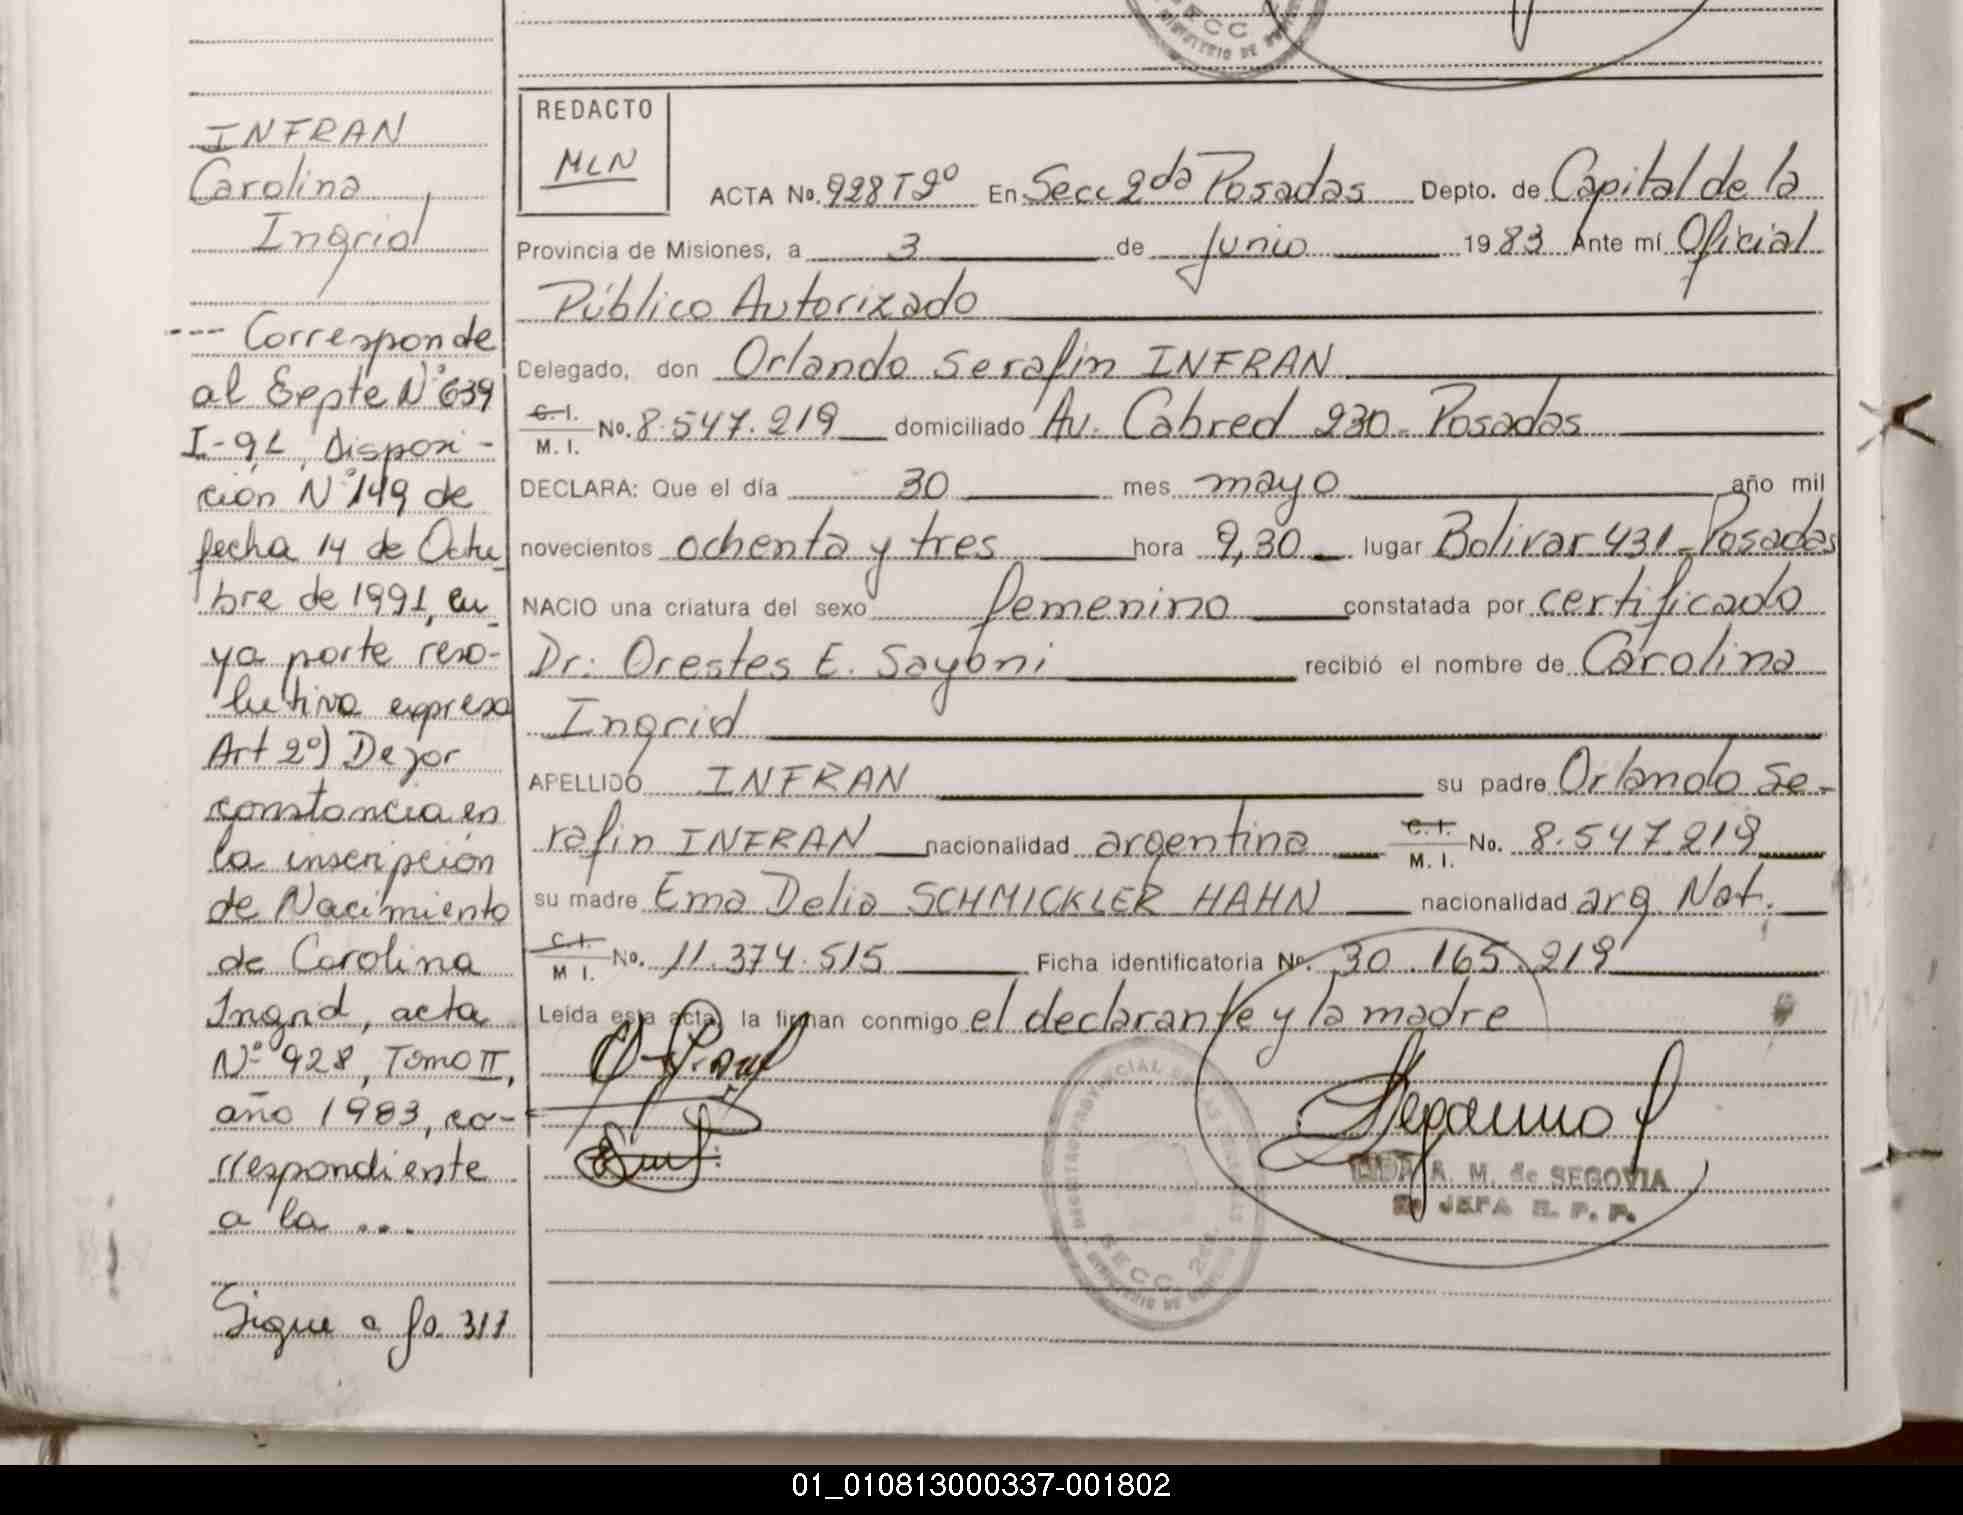 INFRAN
Carolina
Ingrid
--- Corresponde
al Expte Nº 639
I-91, Disposi-
ción Nº 149 de
fecha 14 de Octu
bre de 1991, cu
ya parte reso-
lutiva expresa
Art 2º) Dejar
constancia en
la inscripción
de Nacimiento
de Carolina
Ingrid, acta
Nº 928, Tomo II,
año 1983, co-
rrespondiente
a la ...
Sigue a fo. 311
REDACTO
MLN
ACTA No. 928 T 2º En Secc 2da Posadas Depto. de Capital de la
Provincia de Misiones, a 3 de Junio 1983 Ante mí Oficial
Público Autorizado
Delegado, don Orlando Serafin INFRAN
C. I.
M. I.
No. 8.547.219 domiciliado Av. Cabred 230 - Posadas
DECLARA: Que el día 30 mes mayo año mil
novecientos ochenta y tres hora 9,30 lugar Bolivar 431 - Posadas
NACIO una criatura del sexo femenino constatada por certificado
Dr: Orestes E. recibió el nombre de Carolina
Ingrid
APELLIDO INFRAN su padre Orlando Se-
rafin INFRAN nacionalidad argentina C. I. M. I. No. 8.547.219
su madre Ema Delia SCHMICKLER HAHN nacionalidad arg. Nat.
C. I. M I. No. 11.374.515 Ficha identificatoria No. 30.165.219
Leída esta acta, la firman conmigo el declarante y la madre
A. M. de SEGOVIA
JEFA R. P. P.
SECC. 2da.
01_010813000337-001802